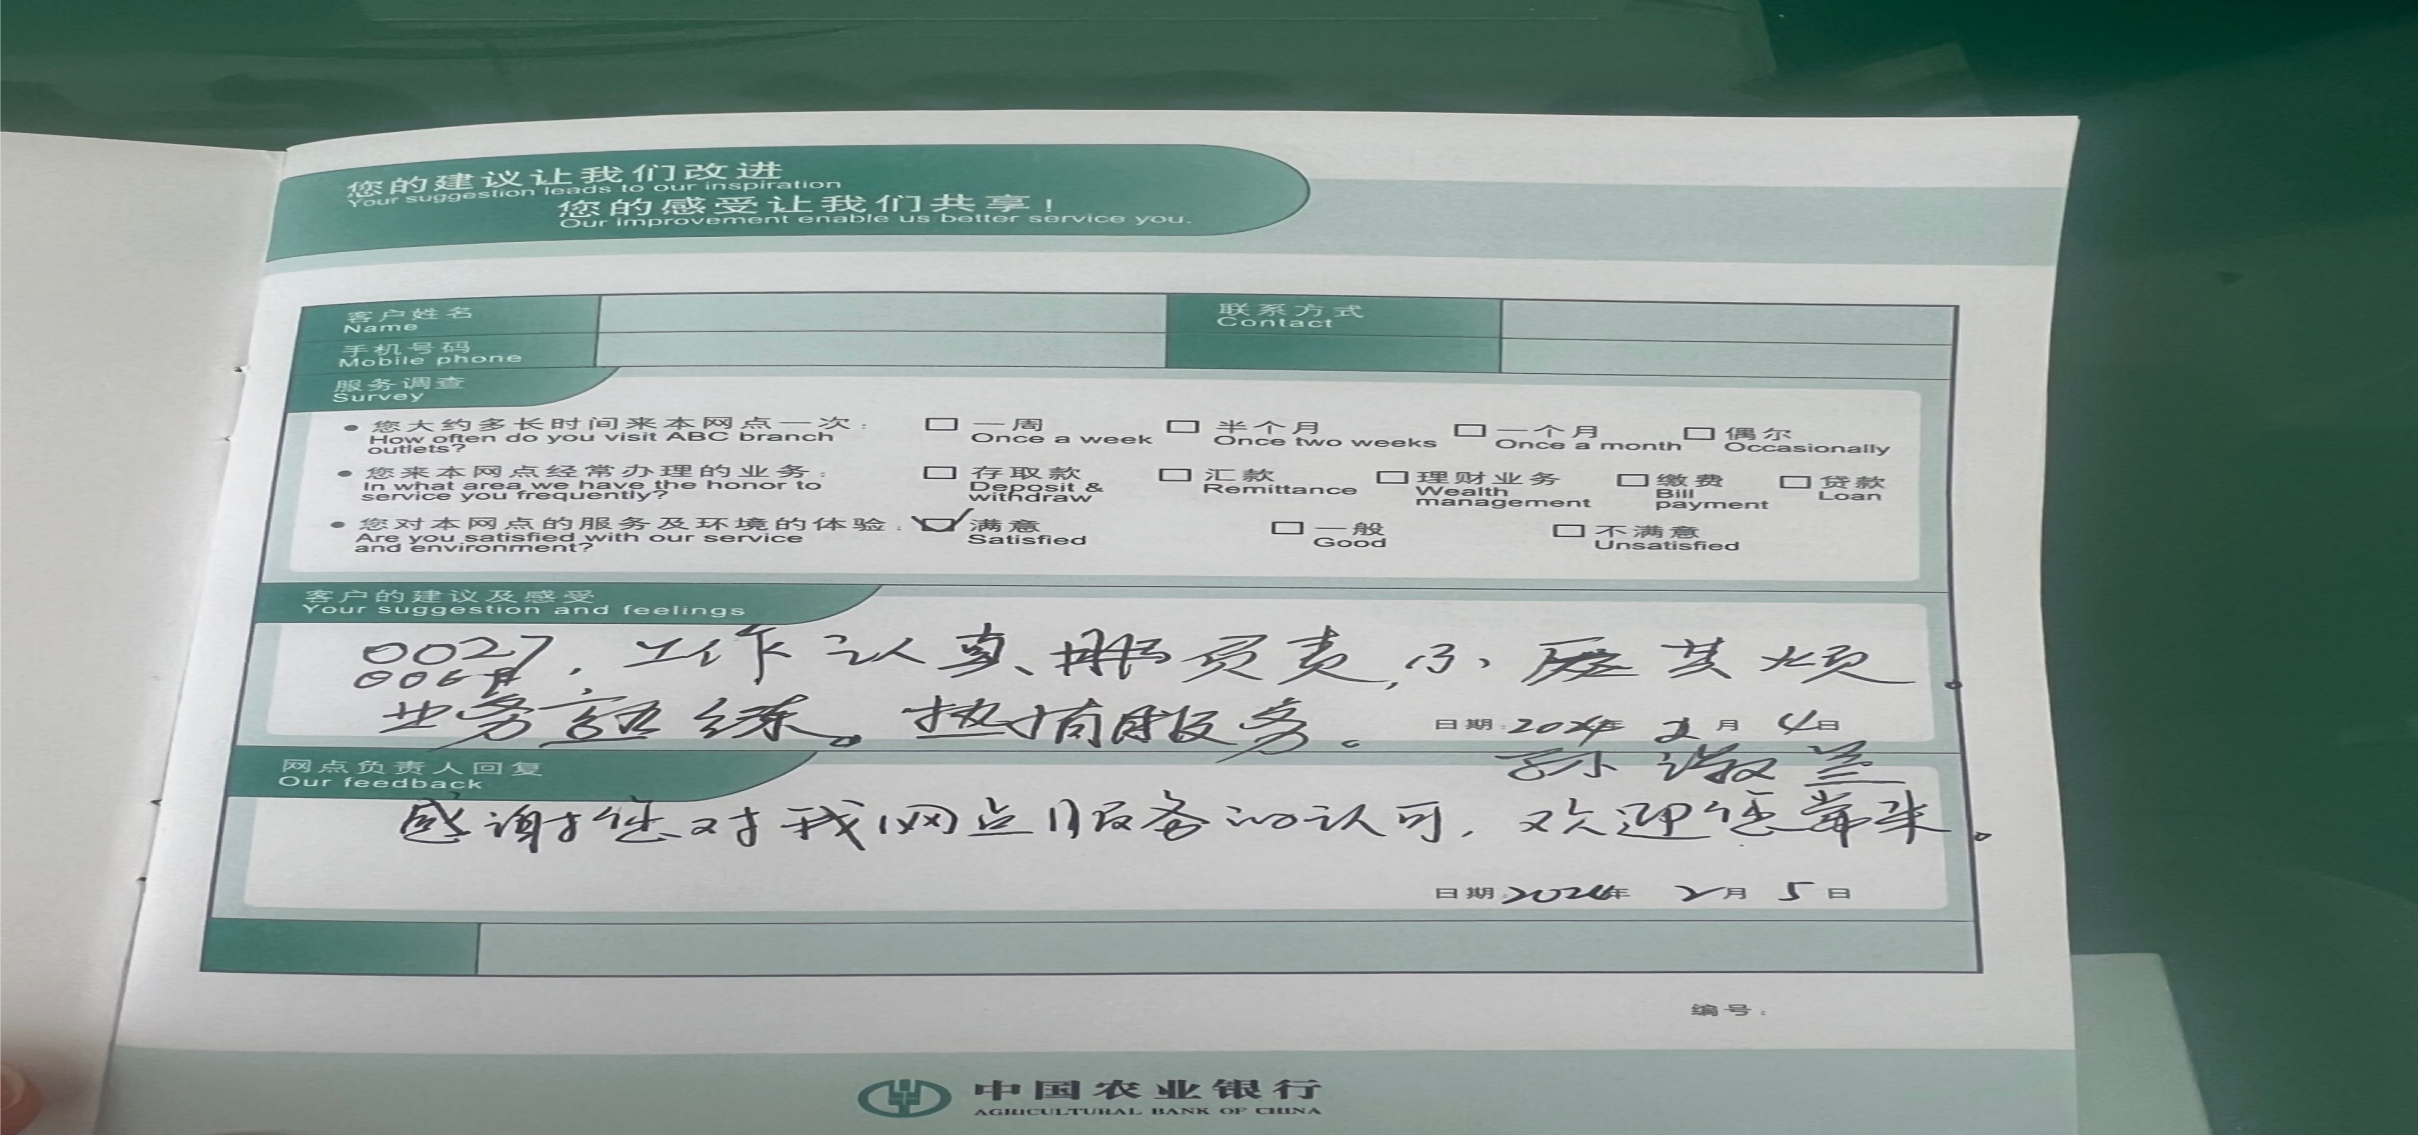 您的建议让我们改进
Your suggestion leads to our inspiration
您的感受让我们共享!
Our improvement enable us better service you.
客户姓名
Name
联系方式
Contact
手机号码
Mobile phone
服务调查
Survey
● 您大约多长时间来本网点一次: □ 一周 □ 半个月 □ 一个月 □ 偶尔
How often do you visit ABC branch outlets? Once a week Once two weeks Once a month Occasionally
● 您来本网点经常办理的业务: □ 存取款 □ 汇款 □ 理财业务 □ 缴费 □ 贷款
In what area we have the honor to service you frequently? Deposit & withdraw Remittance Wealth management Bill payment Loan
● 您对本网点的服务及环境的体验: ☑ 满意 □ 一般 □ 不满意
Are you satisfied with our service and environment? Satisfied Good Unsatisfied
客户的建议及感受
Your suggestion and feelings
0027, 工作认真、负责,不厌其烦。
业务熟练。热情服务。
日期:2024年 2月 4日
孙淑兰
网点负责人回复
Our feedback
感谢您对我网点服务的认可,欢迎您常来。
日期:2024年 2月 5日
编号:
中国农业银行
AGRICULTURAL BANK OF CHINA